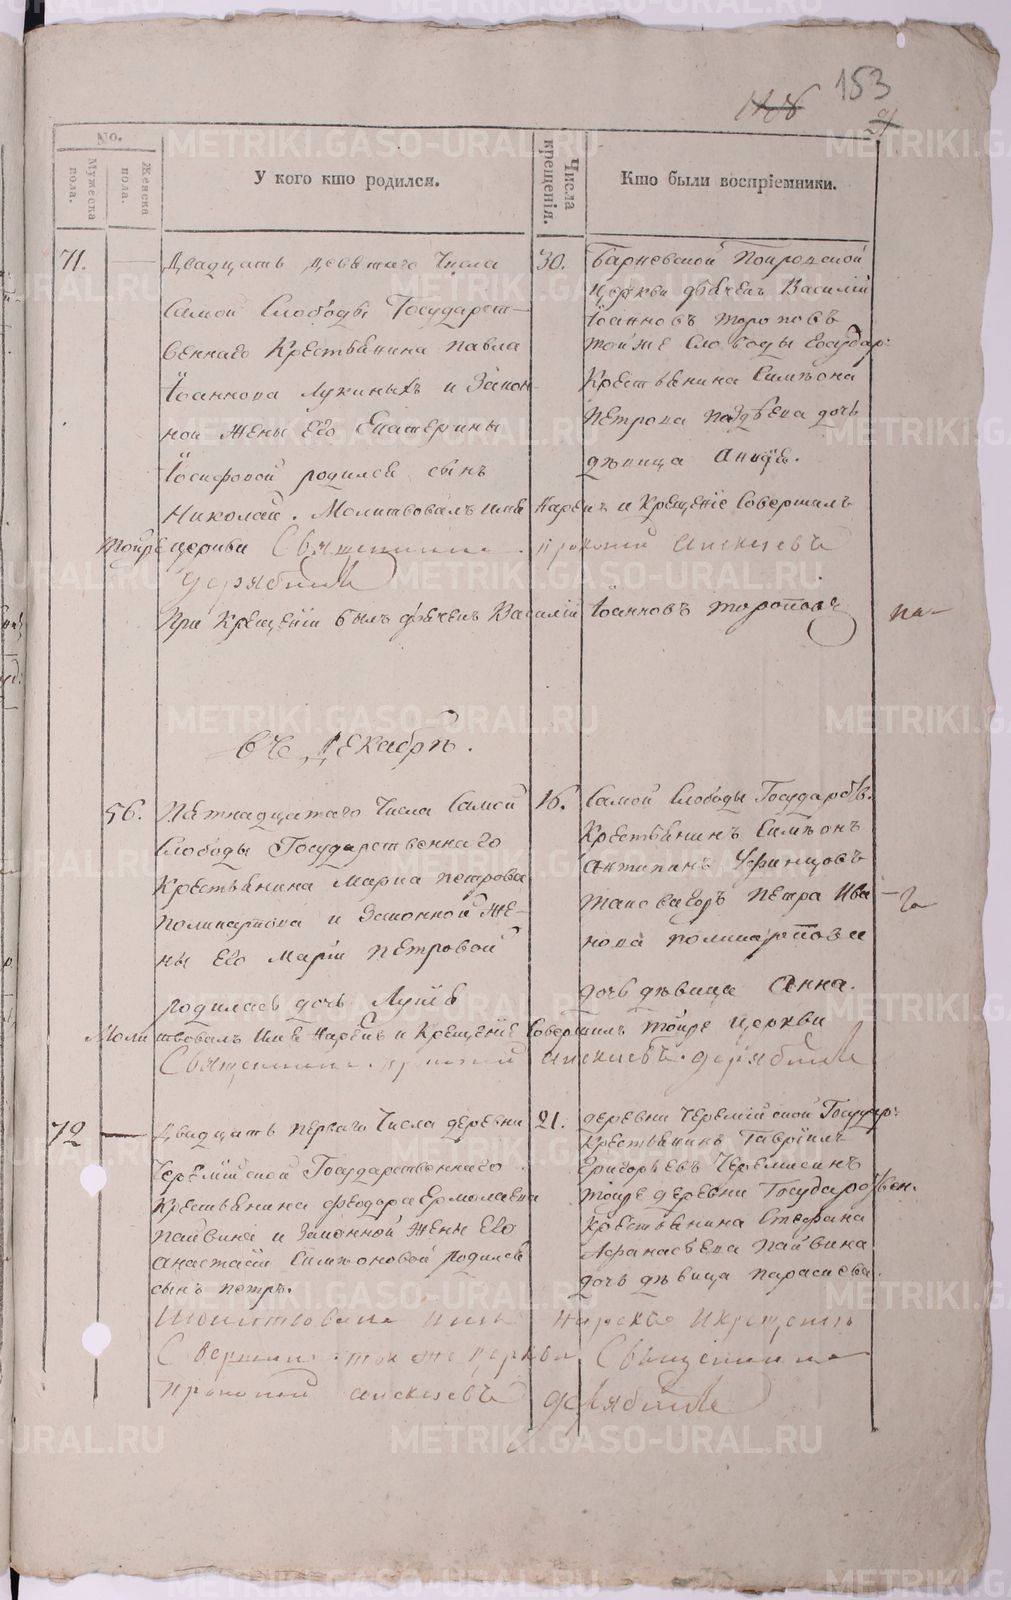 153
No.
Мужеска пола.
Женска пола.
У кого кто родился.
Числа крещенія.
Кто были воспріемники.
71.
Двадцать девятаго Числа
Самой Слободы Государст-
веннаго Крестьянина Павла
Іоаннова Лукиныхъ и Закон-
ной Жены Его Екатерины
Іосифовой родился сынъ
Николай. Молитвовалъ имя Нарекъ и Крещеніе Совершилъ
тойже церкви Священникъ Прокопій Алексіевъ
Дерябинъ
При Крещеніи былъ дьячекъ Василій Іоанновъ Тороповъ
30.
Барневской Богородской
Церкви дьячекъ Василій
Іоанновъ Тороповъ
тойже Слободы Государ:
Крестьянина Симеона
Петрова дочь
дѣвица
въ Декабрѣ.
56.
Пятнадцатаго Числа Самой
Слободы Государственнаго
Крестьянина Марка Петрова
Поликарпова и Законной Же-
ны Его Маріи Петровой
родилась дочь
Молитвовалъ Имя Нарекъ и Крещеніе Совершилъ тойже Церкви
Священникъ Прокопій Алексіевъ Дерябинъ
16.
Самой Слободы Государств.
Крестьянинъ Симеонъ
Антипинъ
Петра Ива-
нова Поликарпова
дочь дѣвица Анна.
72
Двадцать перваго Числа деревни
Черемисской Государственнаго
Крестьянина Феодора Ермолаева
Пайвина и Законной Жены Его
Анастасіи Симеоновой родился
сынъ Петръ.
Молитвовалъ имя нарекъ и крещеніе
Совершилъ той же церкви Священникъ
Прокопій Алексіевъ Дерябинъ
21.
деревни Черемисской Государ:
Крестьянинъ Гавріилъ
Григорьевъ Черемисинъ
тойже деревни Государствен.
Крестьянина Стефана
Афанасьева Пайвина
дочь дѣвица Параскева.
METRIKI.GASO-URAL.RU